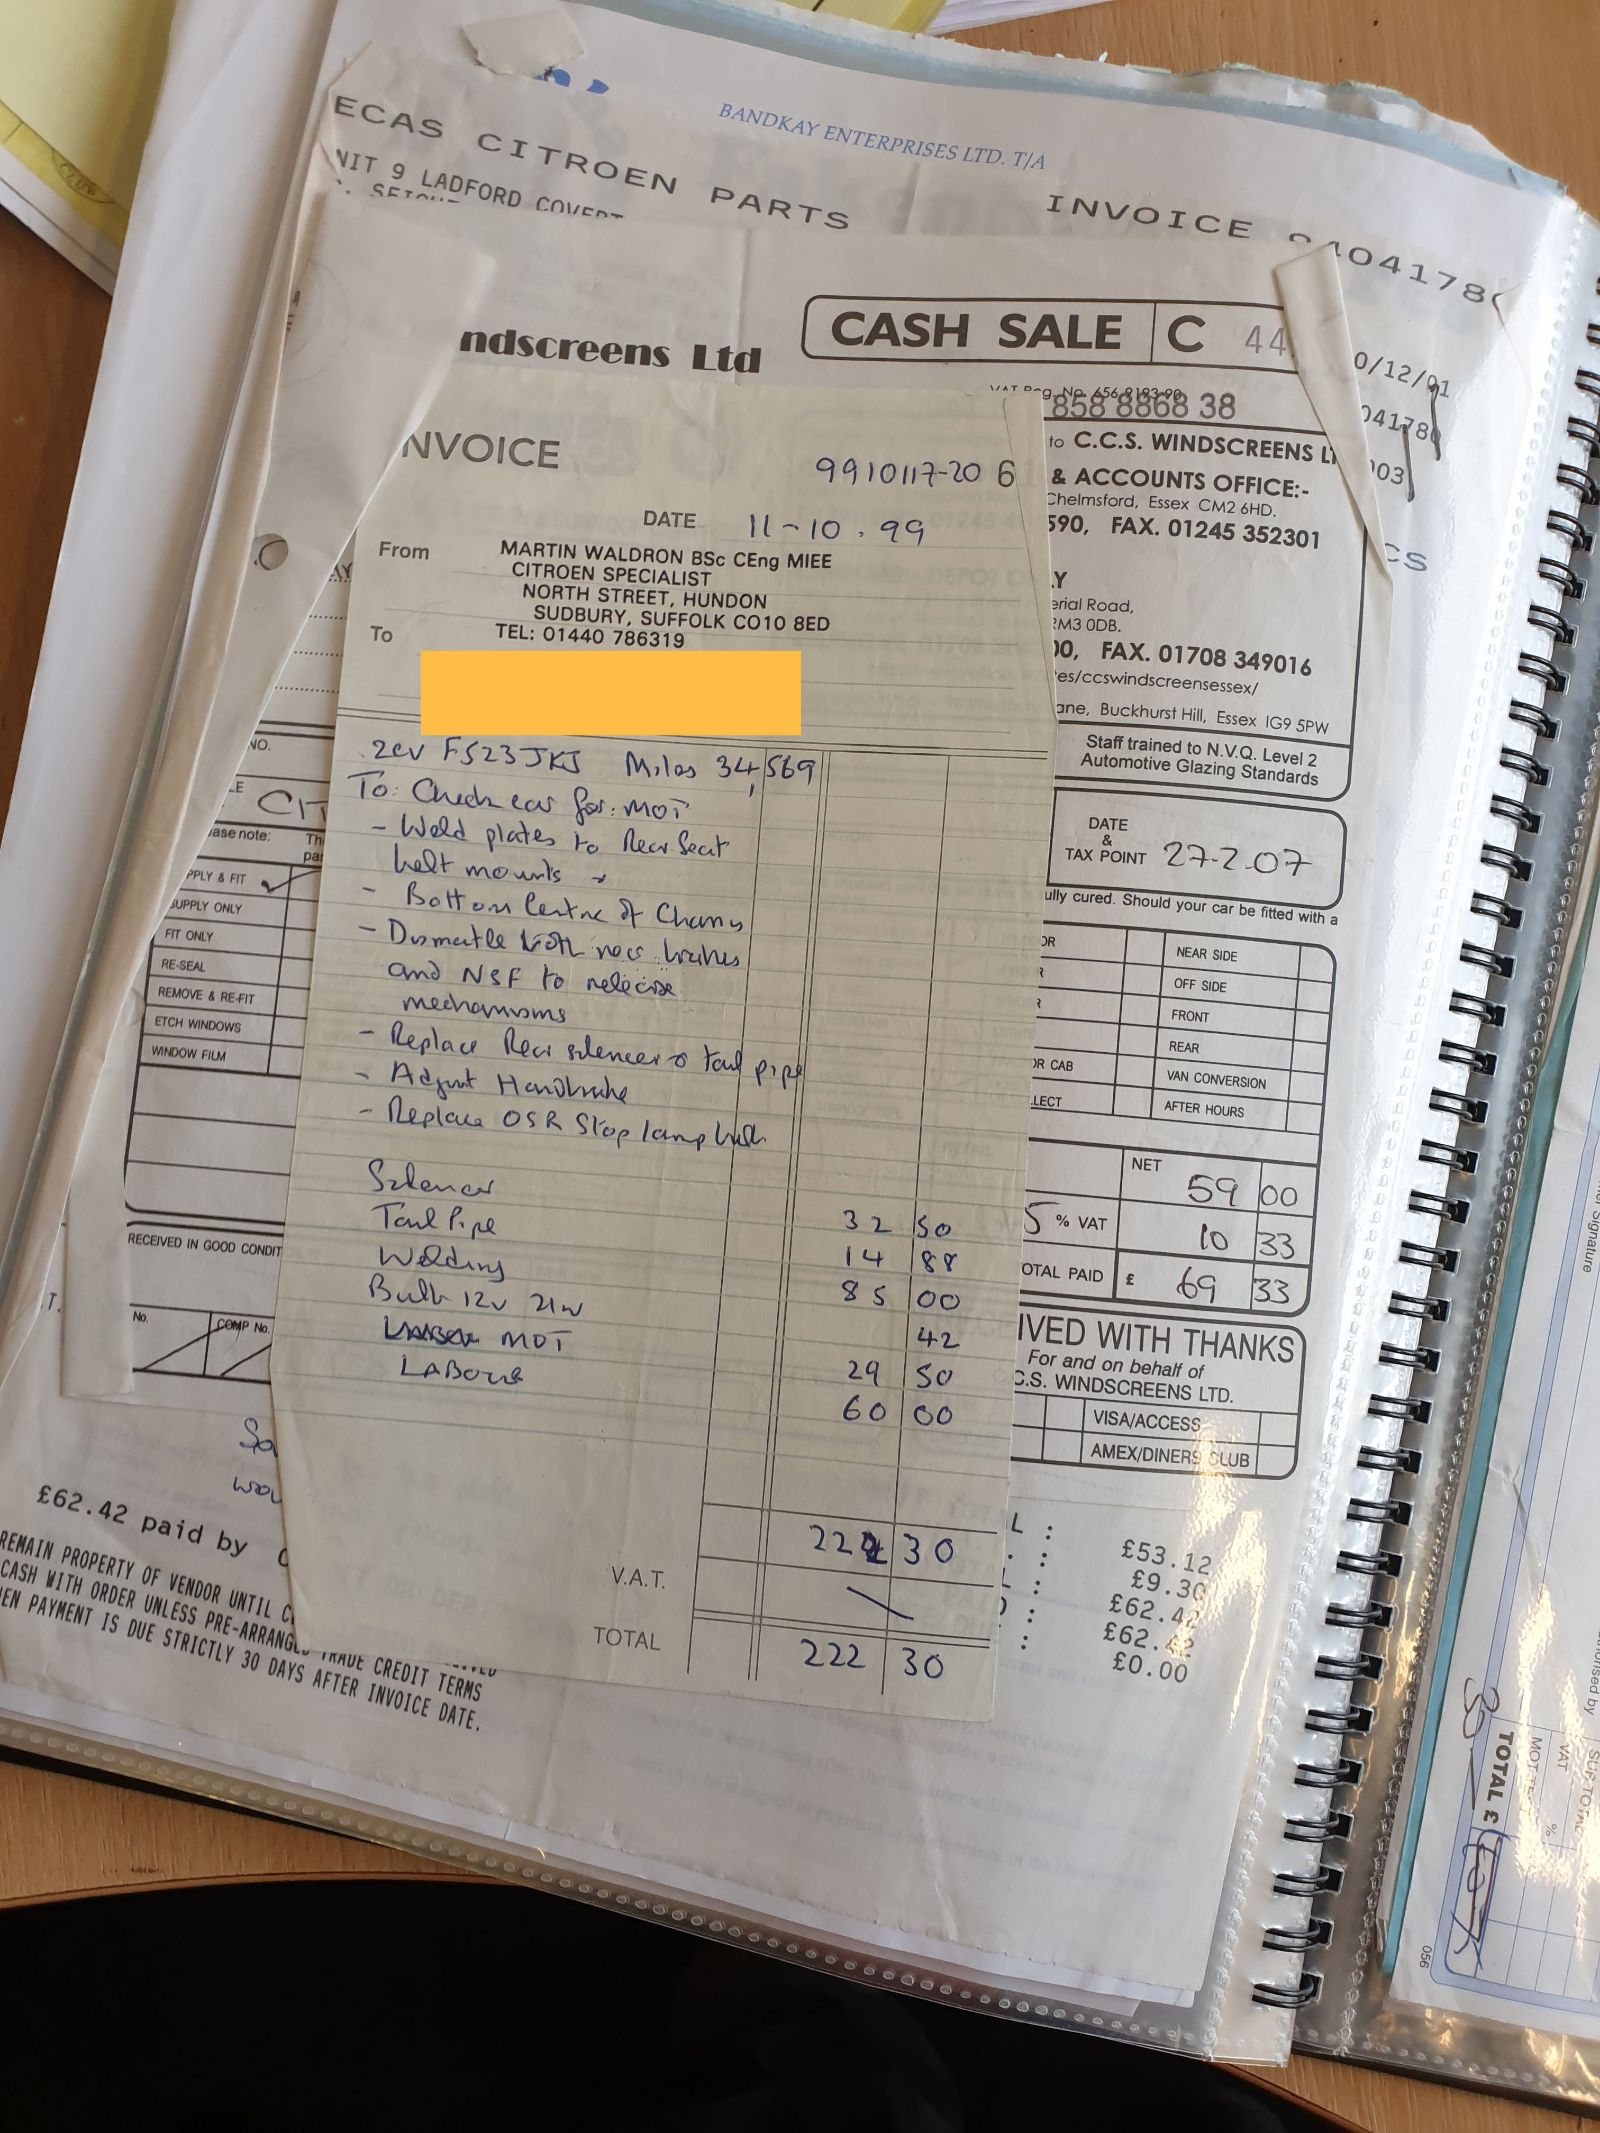 BANDKAY ENTERPRISES LTD. T/A
ECAS CITROEN PARTS
INVOICE
NIT 9 LADFORD COVERT
CASH SALE C 44
ndscreens Ltd
0/12/01
VAT Reg. No. 656 9193 90
858 8868 38
to C.C.S. WINDSCREENS
& ACCOUNTS OFFICE:-
Chelmsford, Essex CM2 6HD.
590, FAX. 01245 352301
CS
erial Road,
RM3 0DB.
00, FAX. 01708 349016
es/ccswindscreensessex/
ane, Buckhurst Hill, Essex IG9 5PW
Staff trained to N.V.Q. Level 2
Automotive Glazing Standards
DATE
&
TAX POINT 27-2.07
ully cured. Should your car be fitted with a
NVOICE
9910117-20 6
DATE 11-10.99
From MARTIN WALDRON BSc CEng MIEE
CITROEN SPECIALIST
NORTH STREET, HUNDON
SUDBURY, SUFFOLK CO10 8ED
To TEL: 01440 786319
2CV F523JKJ Miles 34,569
To: Check car for: MOT
- Weld plates to Rear Seat
belt mounts
- Bottom Centre of
- Dismantle both rear brakes
and NSF to release
mechanisms
- Replace Rear silencer & tail pipe
- Adjust Handbrake
- Replace OSR Stop lamp bulb.
Silencer 32 50
Tail Pipe 14 88
Welding 85 00
Bulb 12v 21w 42
MOT 29 50
LABOUR 60 00
222 30
V.A.T.
TOTAL 222 30
NO.
CIT
ase note: Th
pa
PPLY & FIT
SUPPLY ONLY
FIT ONLY
RE-SEAL
REMOVE & RE-FIT
ETCH WINDOWS
WINDOW FILM
NEAR SIDE
OFF SIDE
FRONT
REAR
OR CAB VAN CONVERSION
LLECT AFTER HOURS
NET 59 00
5 % VAT 10 33
OTAL PAID £ 69 33
RECEIVED IN GOOD CONDIT
No. COMP No.
IVED WITH THANKS
For and on behalf of
C.C.S. WINDSCREENS LTD.
VISA/ACCESS
AMEX/DINERS CLUB
£62.42 paid by
REMAIN PROPERTY OF VENDOR UNTIL
CASH WITH ORDER UNLESS PRE-ARRANG
TRADE CREDIT TERMS
EN PAYMENT IS DUE STRICTLY 30 DAYS AFTER INVOICE DATE.
L : £53.12
: £9.30
: £62.42
: £62.42
: £0.00
Signature
SUB TOTAL
VAT %
MOT TEST
TOTAL £
056